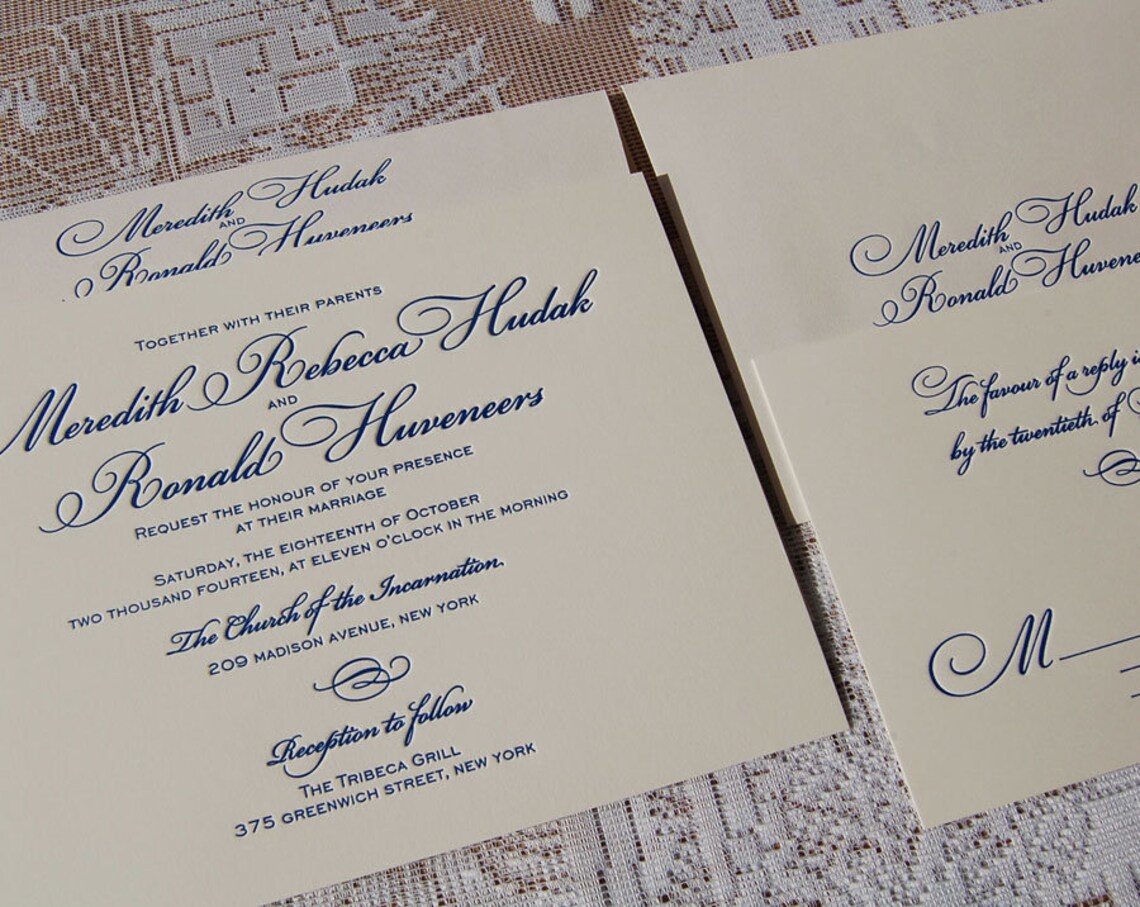 Meredith Hudak
AND
Ronald Huveneers
TOGETHER WITH THEIR PARENTS
Meredith Rebecca Hudak
AND
Ronald Huveneers
REQUEST THE HONOUR OF YOUR PRESENCE
AT THEIR MARRIAGE
SATURDAY, THE EIGHTEENTH OF OCTOBER
TWO THOUSAND FOURTEEN, AT ELEVEN O'CLOCK IN THE MORNING
The Church of the Incarnation
209 MADISON AVENUE, NEW YORK
Reception to follow
THE TRIBECA GRILL
375 GREENWICH STREET, NEW YORK
Meredith Hudak
AND
Ronald Huvene
The favour of a reply i
by the twentieth of
M